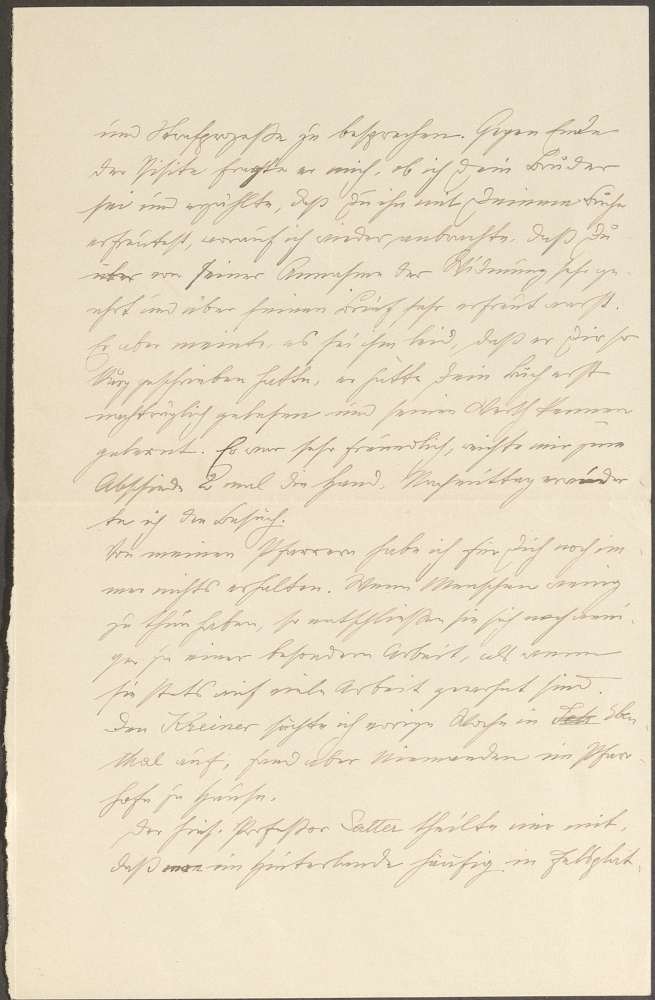 und Strafprozeße zu besprechen. Gegen Ende
der Visite fragte er mich, ob ich Dein Bruder
sei und erzählte, daß Du ihn mit Deinem Buche
erfreutest, worauf ich wieder anbrachte, daß Du
über von seiner Annahme der Widmung sehr ge-
ehrt und über seinen Brief sehr erfreut warst.
Er aber meinte, es sei ihm leid, daß er Dir so
kurz geschrieben hatte, er hätte Dein Buch erst
nachträglich gelesen und seinen Werth kennen
gelernt. Er war sehr freundlich, reichte mir zum
Abschiede 2 mal die Hand. Nachmittag erwider
te ich den Besuch.
Von meinen Pfarrern habe ich für Dich noch im-
mer nichts erhalten. Wenn Menschen wenig
zu thun haben, so entschließen sie sich noch weni-
ger zu einer besondern Arbeit, als wenn
sie stets auf viele Arbeit gewohnt sind.
Den Kreiner suchte ich vorige Woche in Eben-
thal auf, fand aber Niemanden im Pfarr-
hofe zu Hause.
Der hies. Professor Satter theilte mir mit,
daß man im Hinterlande häufig in